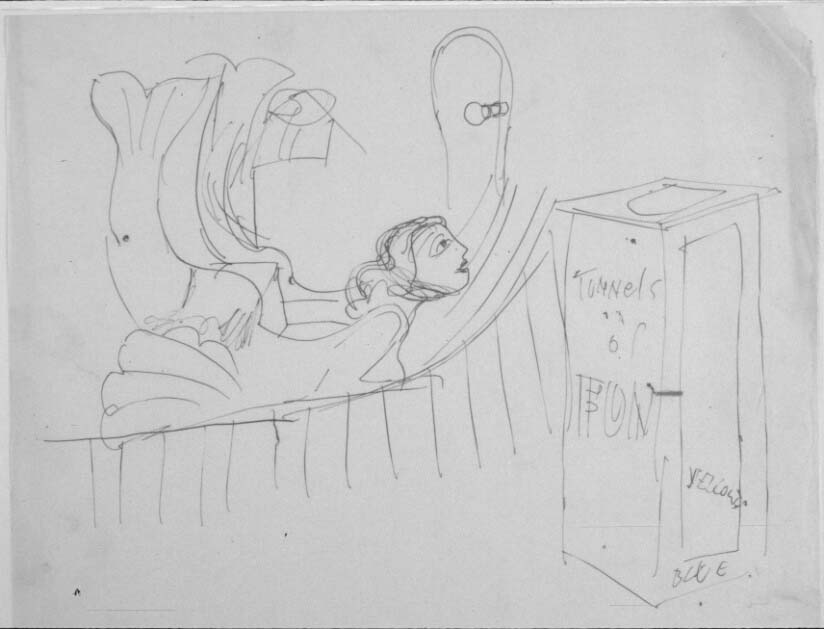 TUNNELS
of
FUN
YELLOW
BLUE